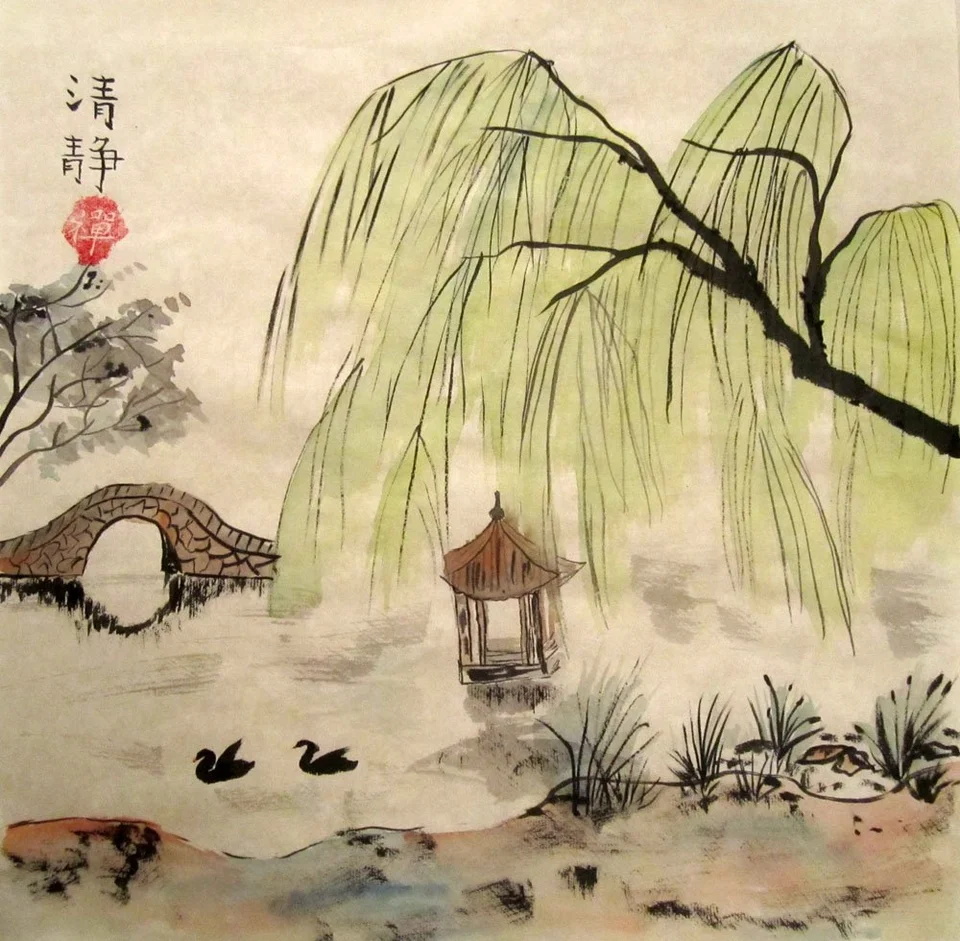 清
静
禪